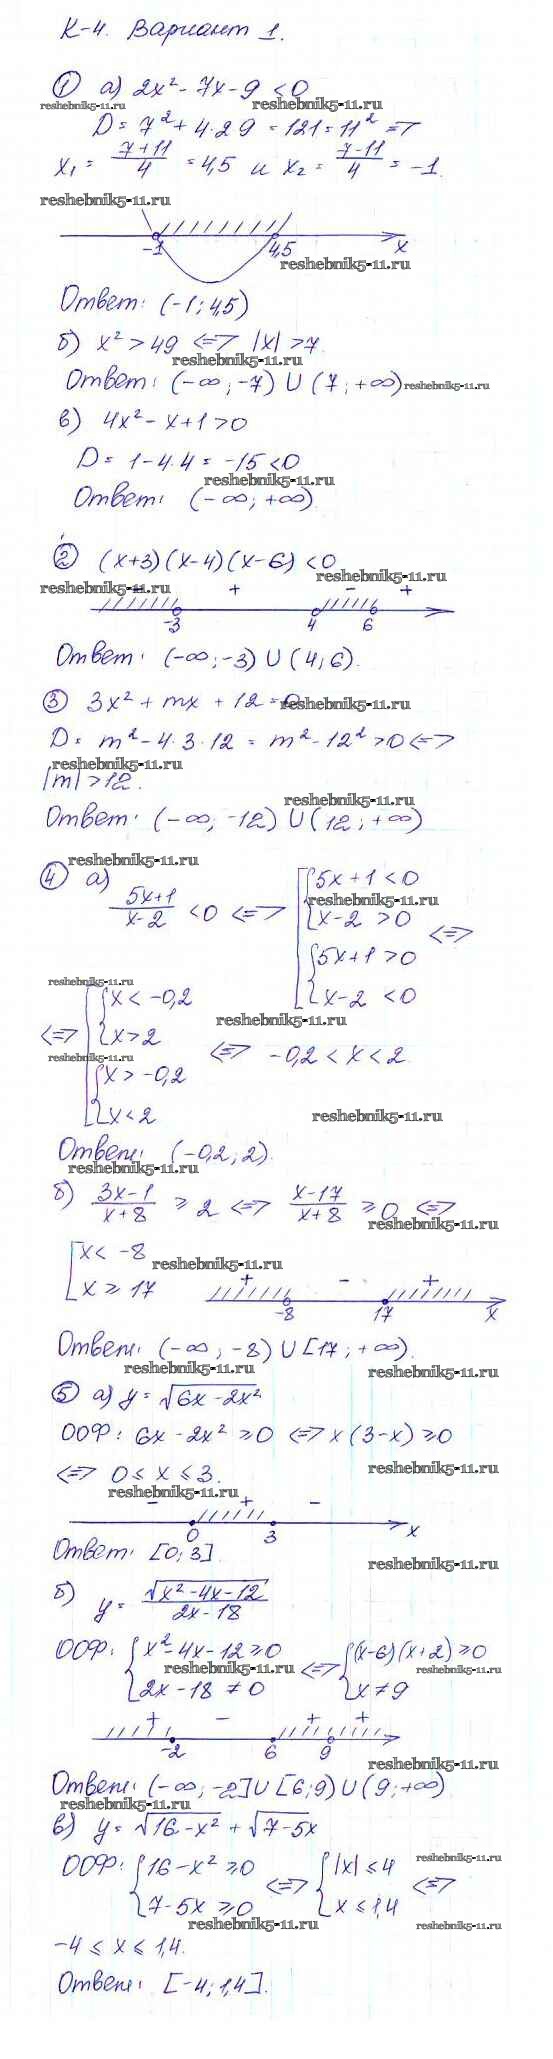 К-4. Вариант 1.
① а) 2x² - 7x - 9 < 0
reshebnik5-11.ru reshebnik5-11.ru
D = 7² + 4·2 9 = 121 = 11² =>
x₁ = (7+11)/4 = 4,5 и x₂ = (7-11)/4 = -1.
reshebnik5-11.ru
-1 4,5 x
reshebnik5-11.ru
Ответ: (-1; 4,5)
б) x² > 49 <=> |x| > 7.
reshebnik5-11.ru
Ответ: (-∞; -7) ∪ (7; +∞) reshebnik5-11.ru
в) 4x² - x + 1 > 0
D = 1 - 4·4 = -15 < 0
reshebnik5-11.ru
Ответ: (-∞; +∞).
② (x+3)(x-4)(x-6) < 0
reshebnik5-11.ru
reshebnik5-11.ru + - +
-3 4 6
Ответ: (-∞; -3) ∪ (4; 6).
③ 3x² + mx + 12 = 0
reshebnik5-11.ru
D = m² - 4·3·12 = m² - 12² > 0 <=>
reshebnik5-11.ru
|m| > 12.
reshebnik5-11.ru
Ответ: (-∞; -12) ∪ (12; +∞)
reshebnik5-11.ru
④ а) (5x+1)/(x-2) < 0 <=> [ { 5x+1 < 0
reshebnik5-11.ru
x-2 > 0
{ 5x+1 > 0 <=>
x-2 < 0
reshebnik5-11.ru
reshebnik5-11.ru
<=> [ { x < -0,2
x > 2
reshebnik5-11.ru
{ x > -0,2
x < 2
<=> -0,2 < x < 2.
reshebnik5-11.ru
Ответ: (-0,2; 2).
reshebnik5-11.ru
б) (3x-1)/(x+8) ≥ 2 <=> (x-17)/(x+8) ≥ 0 <=>
reshebnik5-11.ru
[ x < -8
x ≥ 17
reshebnik5-11.ru
+ - +
-8 17 x
Ответ: (-∞; -8) ∪ [17; +∞).
reshebnik5-11.ru reshebnik5-11.ru
⑤ а) y = √(6x - 2x²)
ООФ: 6x - 2x² ≥ 0 <=> x(3-x) ≥ 0
<=> 0 ≤ x ≤ 3.
reshebnik5-11.ru
reshebnik5-11.ru
- + -
0 3 x
Ответ: [0; 3].
reshebnik5-11.ru
б) y = √(x² - 4x - 12)/(2x - 18)
ООФ: { x² - 4x - 12 ≥ 0
2x - 18 ≠ 0
<=> { (x-6)(x+2) ≥ 0
x ≠ 9
reshebnik5-11.ru reshebnik5-11.ru
+ - + +
-2 6 9
reshebnik5-11.ru
Ответ: (-∞; -2] ∪ [6; 9) ∪ (9; +∞)
reshebnik5-11.ru
в) y = √(16 - x²) + √(7-5x)
reshebnik5-11.ru
ООФ: { 16 - x² ≥ 0
7 - 5x ≥ 0
<=> { |x| ≤ 4
x ≤ 1,4
<=>
reshebnik5-11.ru reshebnik5-11.ru
-4 ≤ x ≤ 1,4.
Ответ: [-4; 1,4].